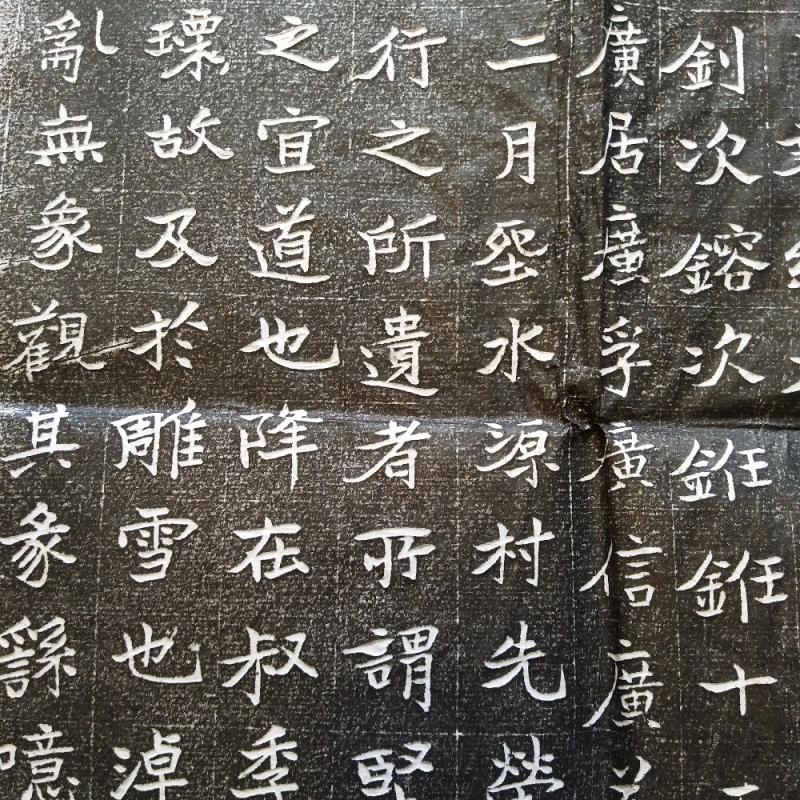 釗次鎔次銋銋十
廣居廣孚廣信廣
二月水源村先塋
行之所遺者所謂堅
之宜道也降在叔季
故及於雕雪也淖
亂無象觀其彖繇噫